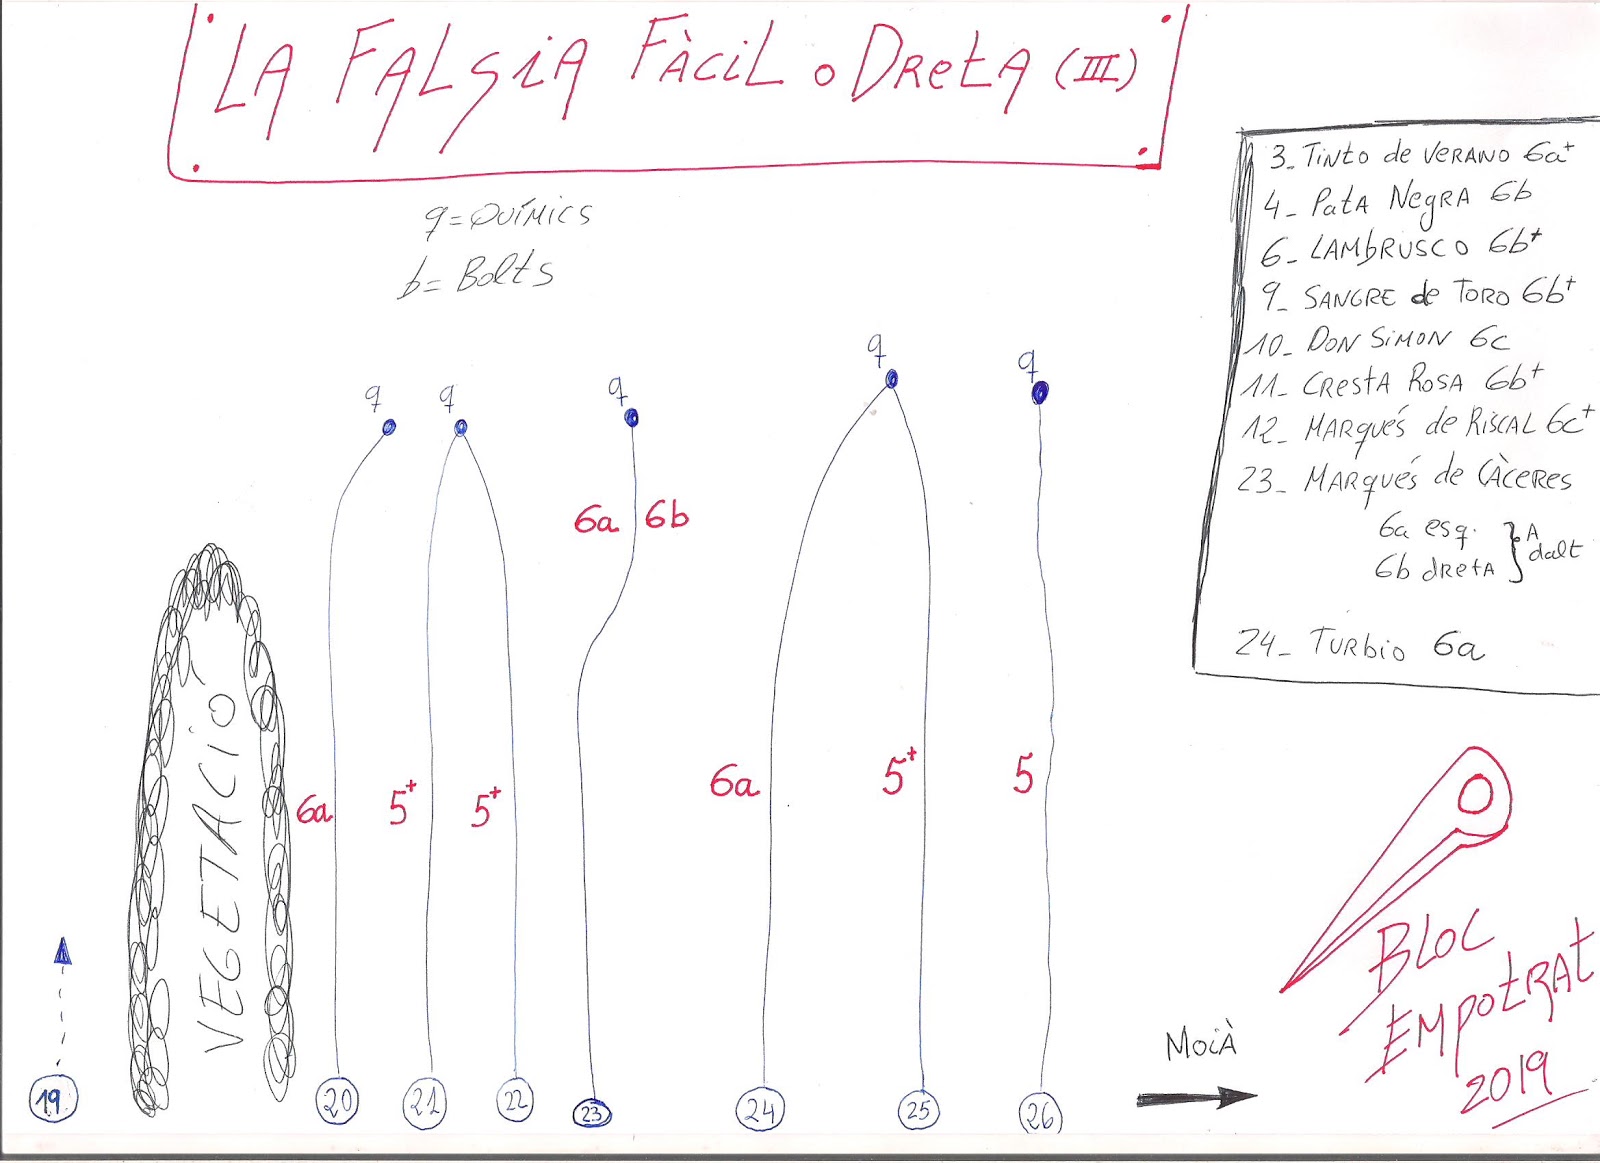 LA FALSIA FÀCIL o DRETA (III)
q = QUÍMICS
b = Bolts
3_ TINTO de VERANO 6a+
4_ PATA NEGRA 6b
6_ LAMBRUSCO 6b+
9_ SANGRE de TORO 6b+
10_ DON SIMON 6c
11_ CRESTA ROSA 6b+
12_ MARQUÉS de RISCAL 6c+
23_ MARQUÉS de CÀCERES
6a esq. } A
6b dreta } dalt
24_ TURBIO 6a
q
q
q
q
q
6a 6b
VEGETACIÓ
6a
5+
5+
6a
5+
5
19
20
21
22
23
24
25
26
MOIÀ
BLOC
EMPOTRAT
2019